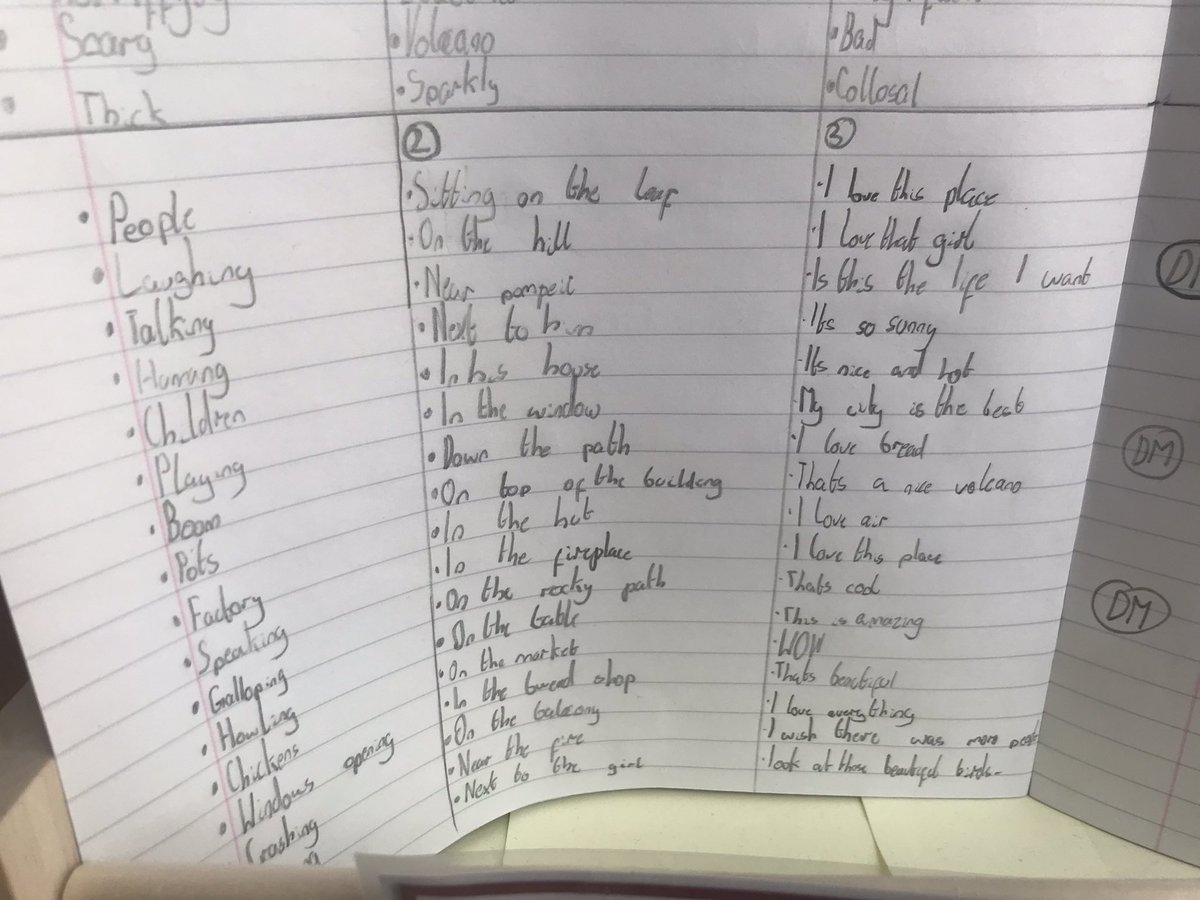 Scary
Thick
• Volcano
• Sparkly
• Bad
• Collosal
• People
• Laughing
• Talking
• Humming
• Children
• Playing
• Boom
• Pots
• Factory
• Speaking
• Galloping
• Howling
• Chickens
• Windows opening
• Crashing
②
• Sitting on the leaf
• On the hill
• Near pompeii
• Next to him
• In his house
• In the window
• Down the path
• On top of the building
• In the hut
• In the fireplace
• On the rocky path
• On the table
• On the market
• In the bread shop
• On the balcony
• Near the fire
• Next to the girl
③
• I love this place
• I love that girl
• Is this the life I want
• Its so sunny
• Its nice and hot
• My city is the best
• I love bread
• Thats a nice volcano
• I love air
• I love this place
• Thats cool
• This is amazing
• WOW
• Thats beautiful
• I love everything
• I wish there was more
• look at those beautiful birds
DM
DM